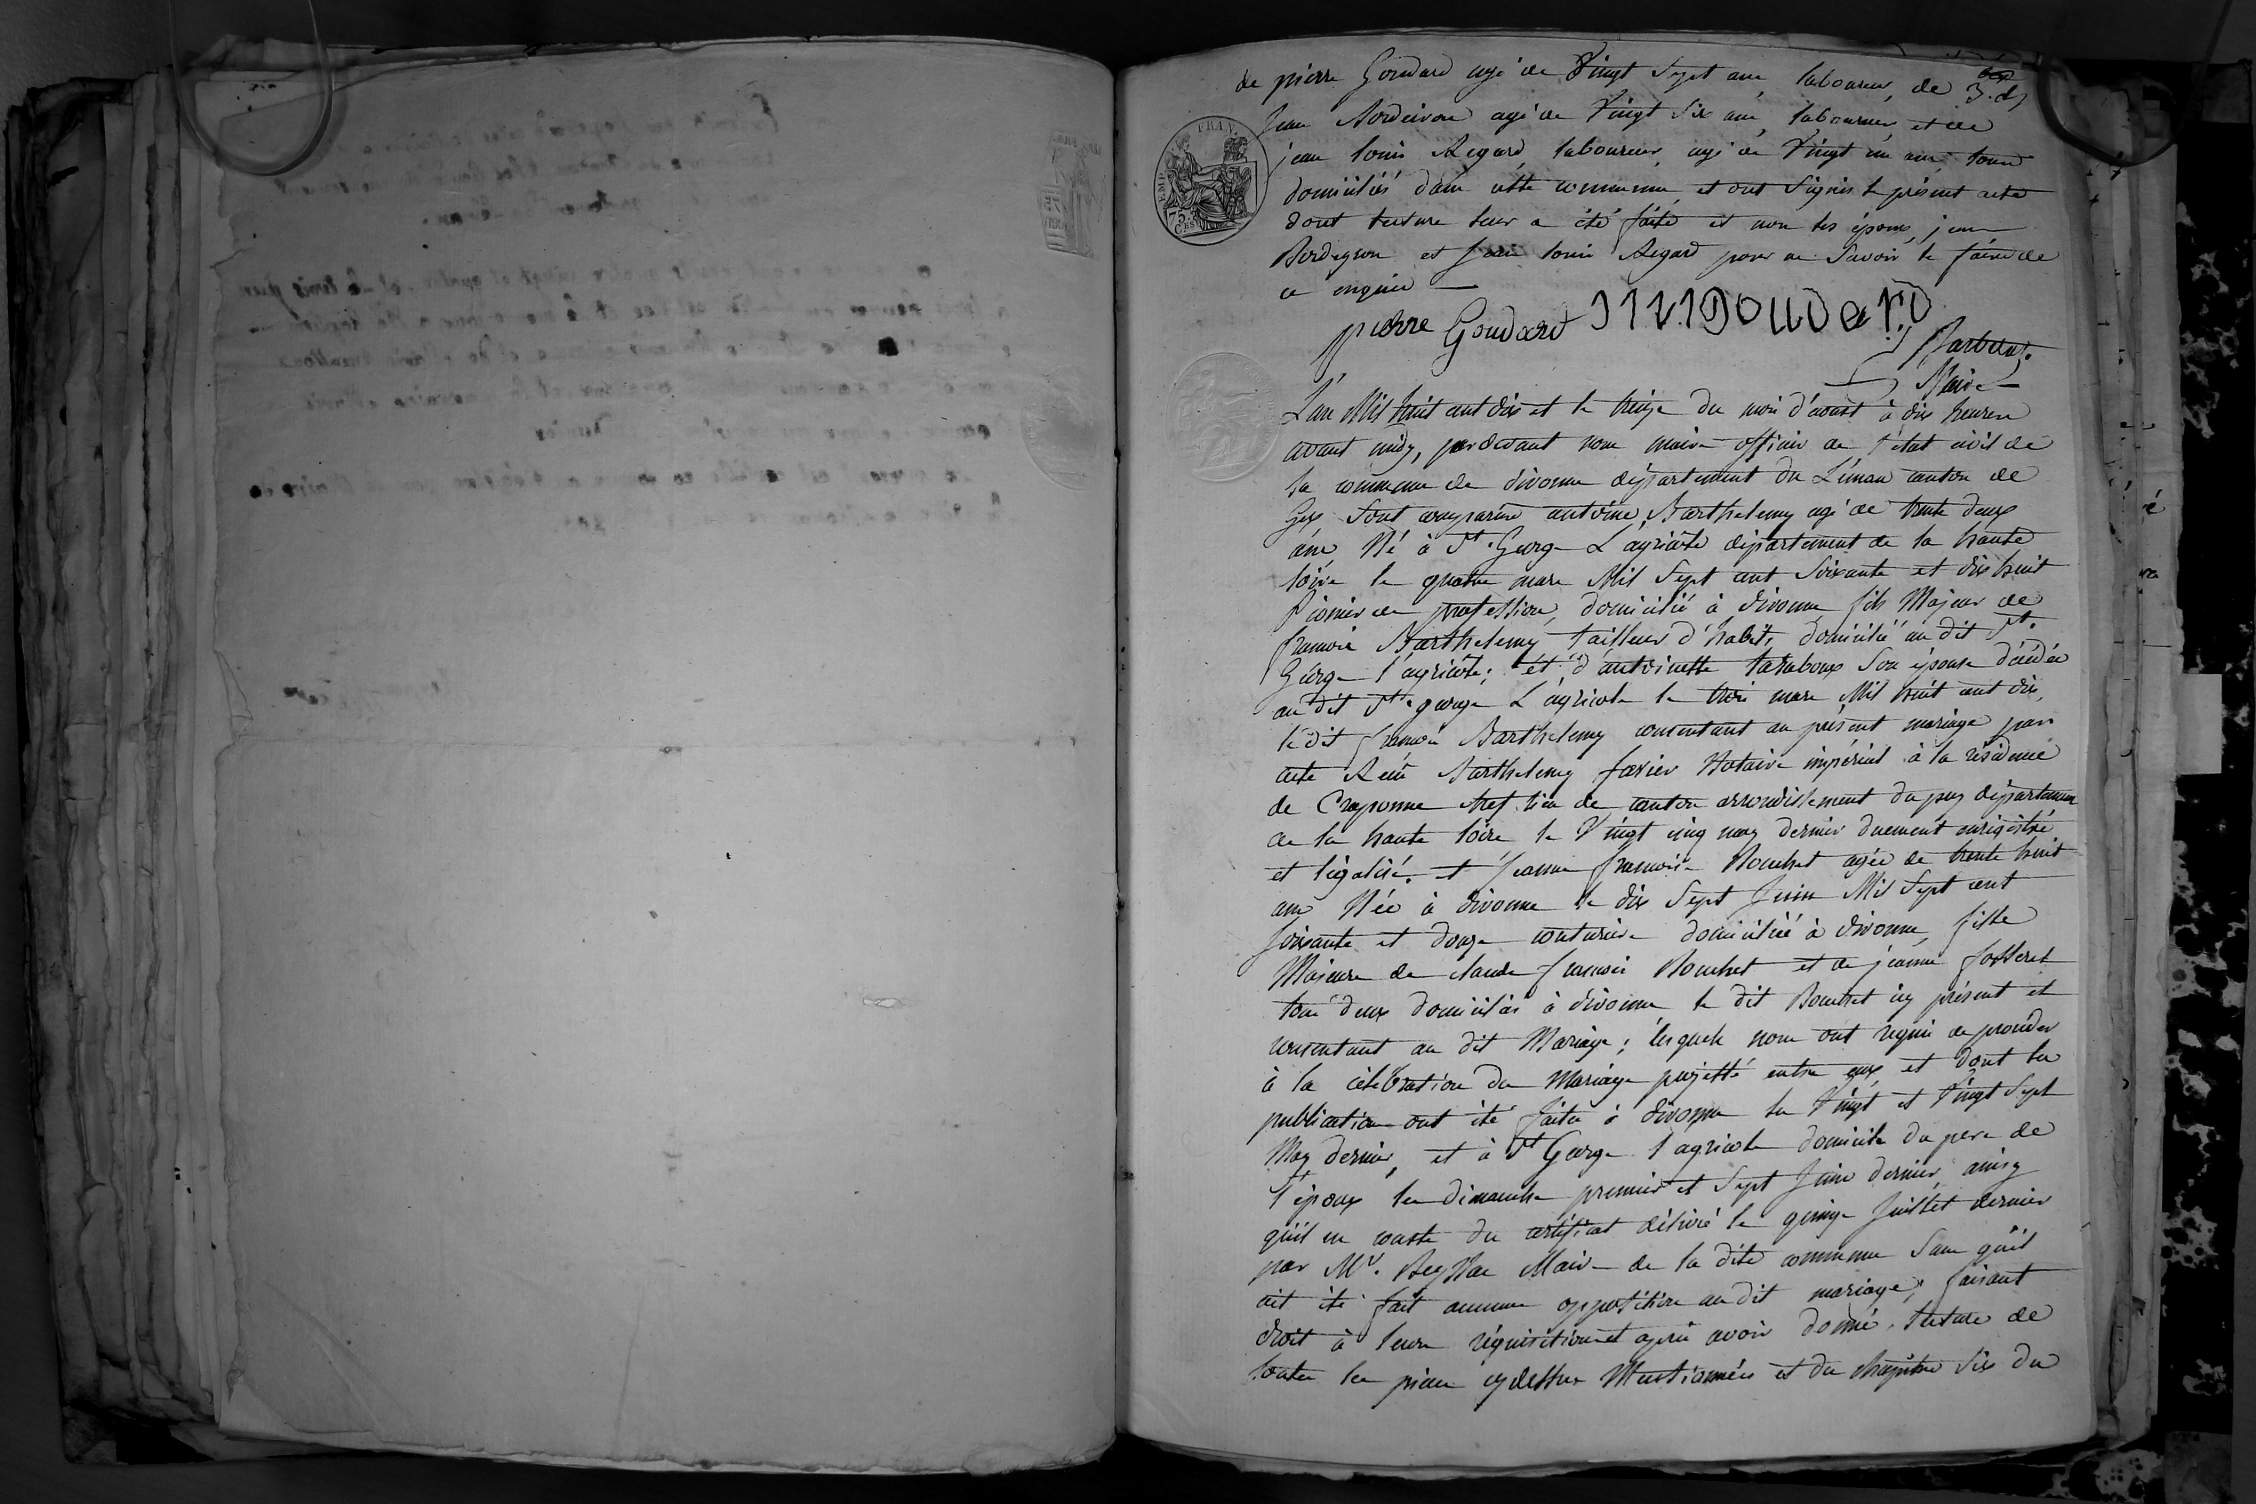 de pierre Goudard agé de Vingt Sept ans, laboureur, de
3. d
jean Bordeiron agé de Vingt Six ans, laboureur, et de
jean louis Regard, laboureur, agé de Vingt un ans tous
domiciliés dans cette commune, et ont Signés le présent acte
dont lecture leur a été faite et non les époux, jean
Bordeyron et jean louis Regard pour ne Savoir le faire de
ce enquis
FRAN.
EMP.
75.
CES
pierre Goudard Goudard
Barberat.
Maire
L'an Mil huit cent dix et le treize du mois d'aoust à dix heures
avant midy, pardevant nous maire officier de l'état civil de
la commune de divonne département du Léman canton de
Gex Sont comparus antoine Barthelemy agé de trente deux
ans Né à St. George L'agricole département de la haute
loire le quatre mars Mil Sept cent Soixante et dix huit
Pionier de profession, domicilié à divonne fils Majeur de
francois Barthelemy tailleur d'habits domicilié au dit St.
George l'agricole; et d'antoinette Son épouse décédée
au dit St. george L'agricole le trois mars Mil huit cent dix,
le dit francois Barthelemy consentant au présent mariage par
acte Reçu Barthelemy favier Notaire impérial à la résidence
de Craponne chef lieu de canton arrondissement du puy département
de la haute loire le Vingt cinq may dernier duement enrigistré
et légalisé. et jeanne francoise Bouchet agée de trente huit
ans Née à divonne le dix Sept Juin Mil Sept cent
Soixante et douze couturière domiciliée à divonne, fille
Majeure de claude francois Bouchet et de jeanne fosseret
tous deux domiciliés à divonne le dit Bouchet icy présent et
consentant au dit Mariage; lesquels nous ont requis de proceder
à la célébration du Mariage projetté entre eux et dont les
publications ont été faites à divonne les Vingt et Vingt Sept
May dernier, et à St George l'agricole domicile du pere de
l'époux les dimanches premier et Sept Juin dernier, ainsy
qu'il en conste du certificat délivré le quinze Juillet dernier
par Mr. Maire de la dite commune Sans qu'il
ait été fait aucune opposition au dit mariage; faisant
droit à leurs réquisition et après avoir donné lecture de
toutes les pieces cydessus Mentionnées et du chapitre Six du